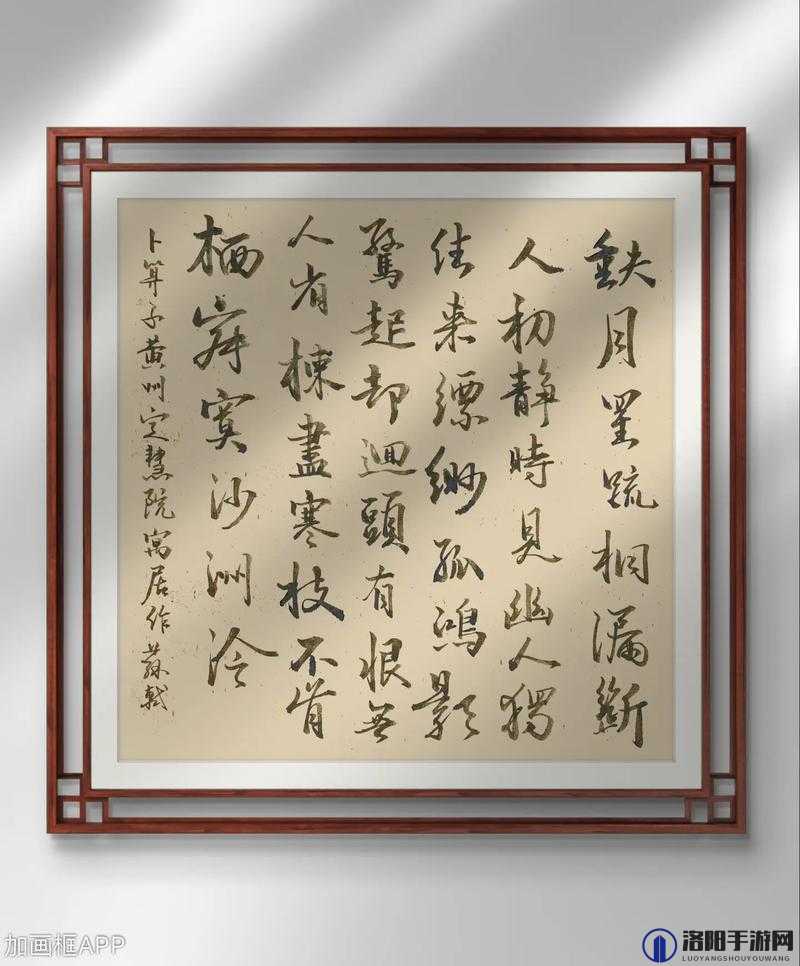 缺月罣疏桐漏斷
人初靜時見幽人獨
往來縹緲孤鴻影
驚起却迴頭有恨無
人省揀盡寒枝不肯
栖寂寞沙洲冷
卜算子黄州定慧院寓居作蘇軾
加画框APP
洛阳手游网
LUOYANGSHOUYOUWANG